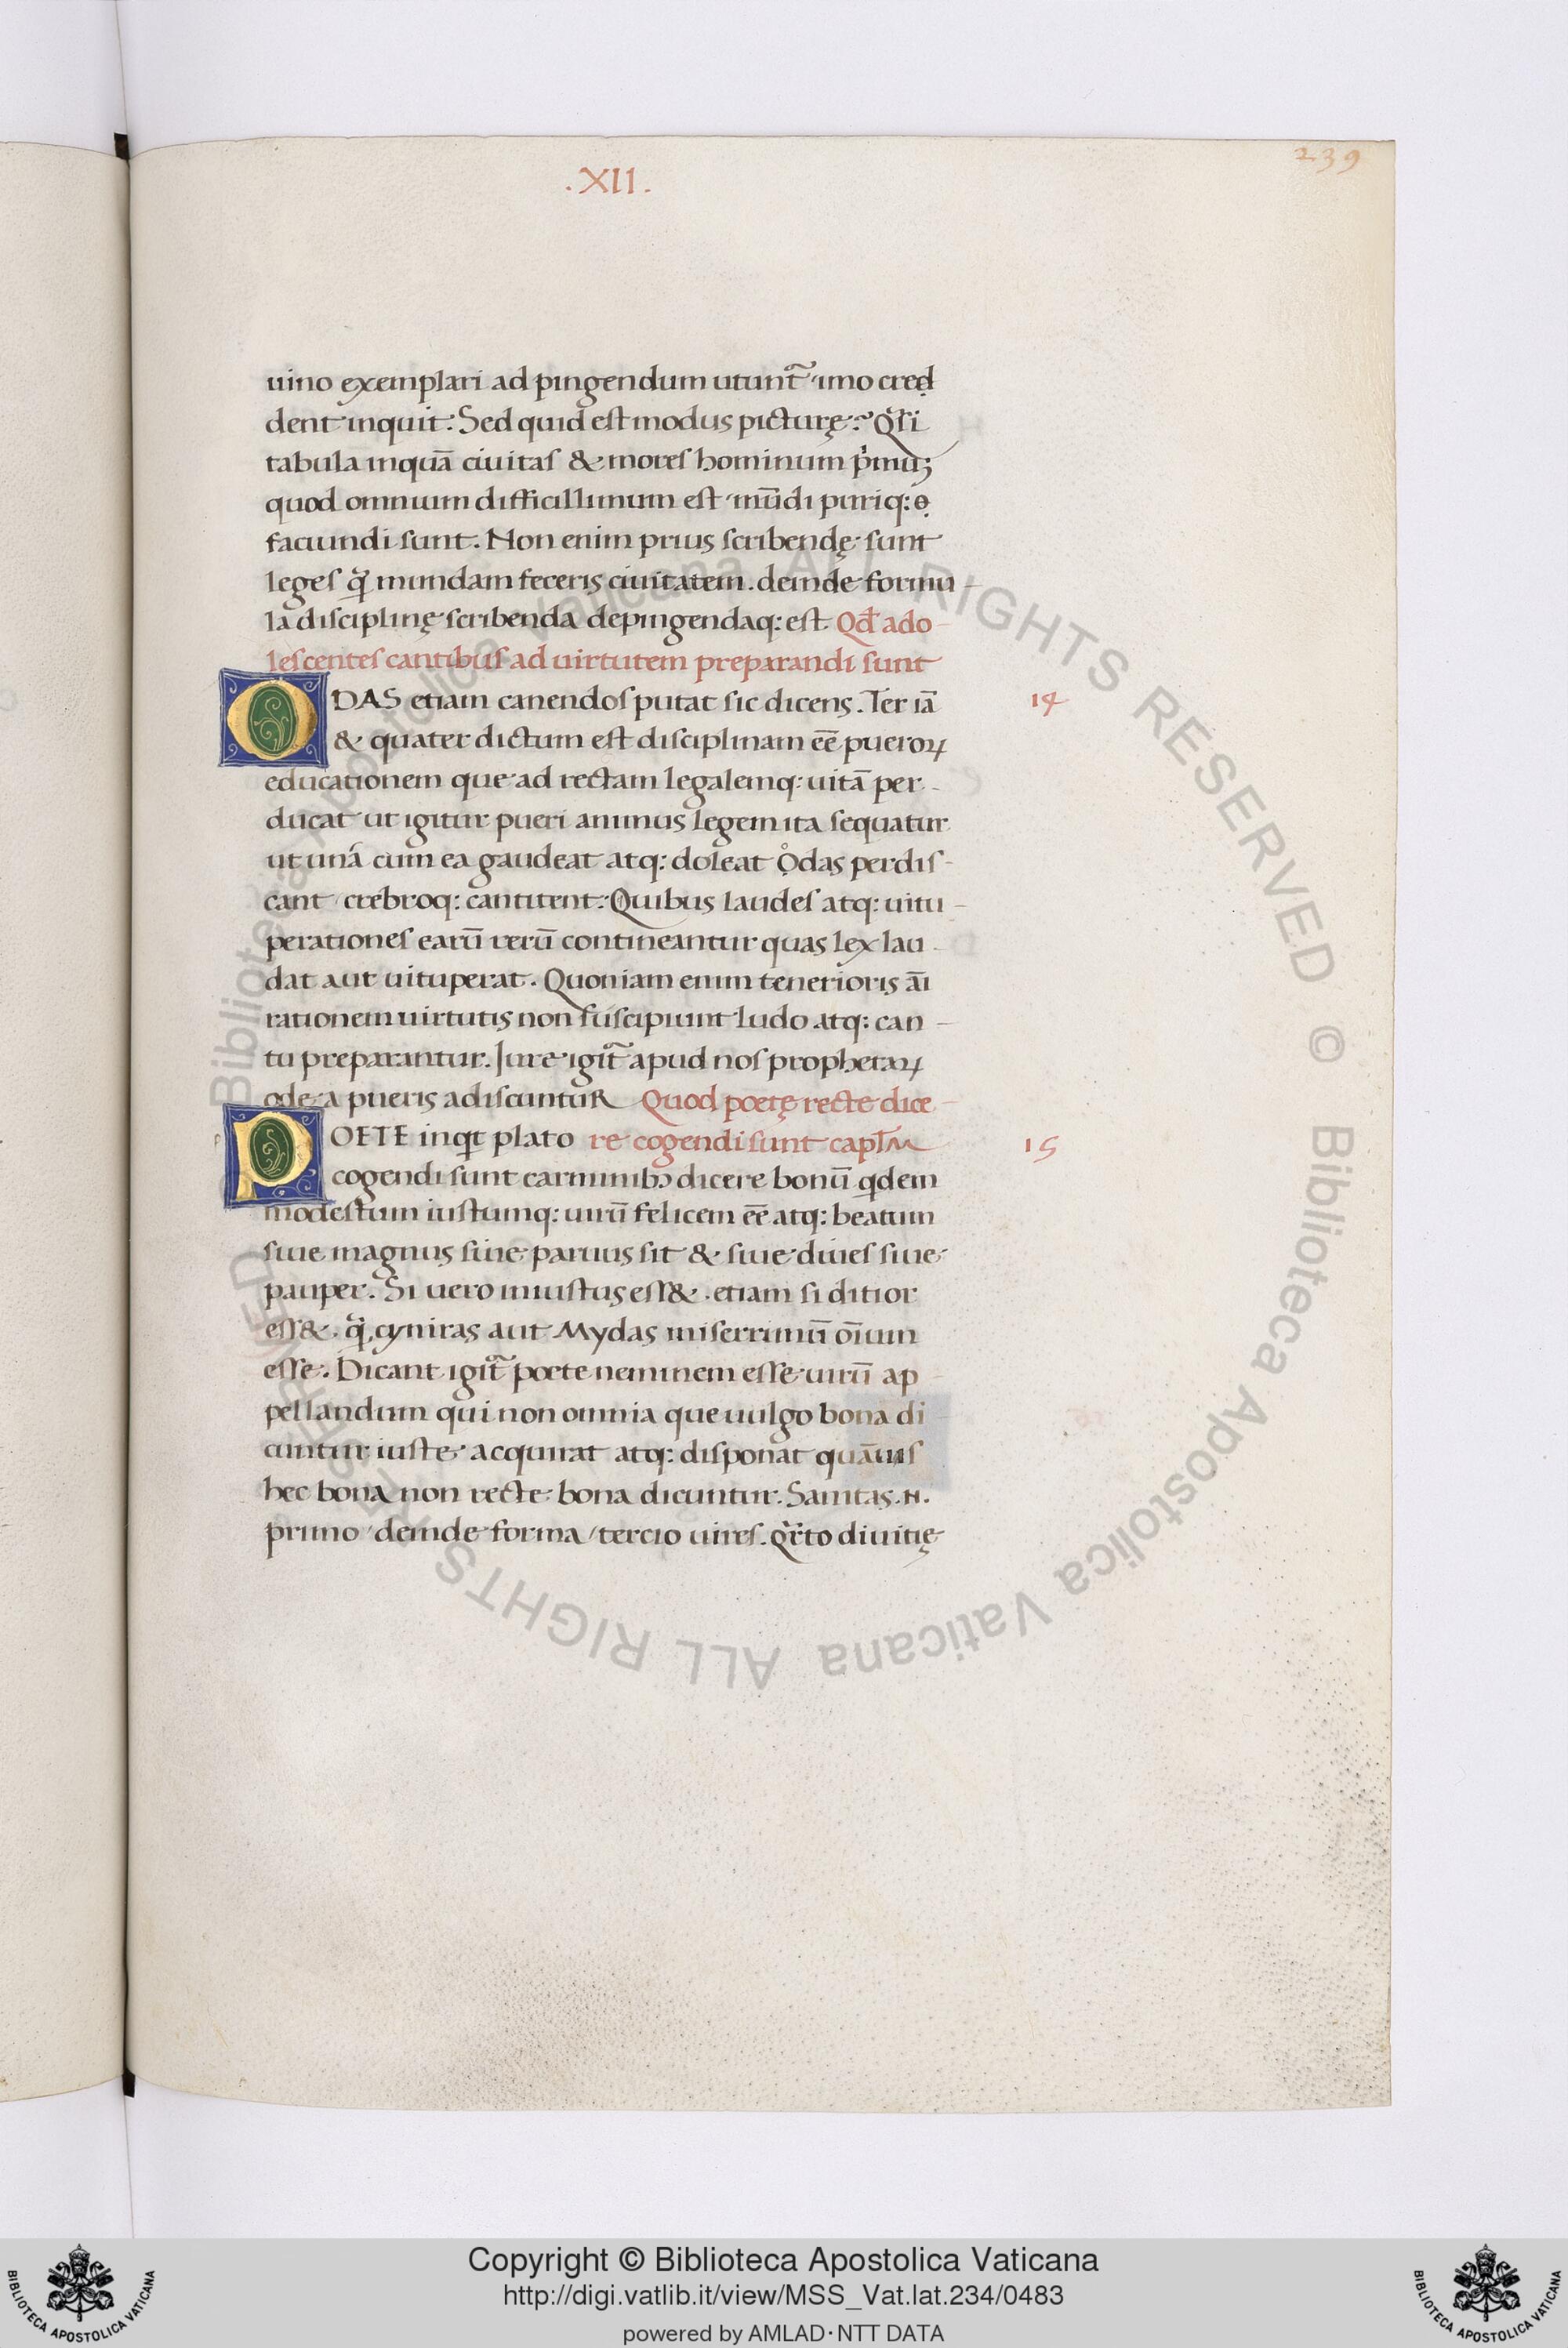 .XII.
239
uino exemplari ad pingendum utunt᷑ imo cred
dent inquit: Sed quid est modus picturę? Q̃si
tabula inquā ciuitas & mores hominum p̍muꝫ
quod omnium difficillimum est mūdi puriq:
faciundi sunt. Non enim prius scribendę sunt
leges q̃ mundam feceris ciuitatem. deinde formu
la disciplinę scribenda depingendaq: est. Qđ ado
lescentes cantibus ad uirtutem preparandi sunt
ODAS etiam canendos putat sic dicens. Ter iā
14
& quater dictum est disciplinam eē pueroꝝ
educationem que ad rectam legalemq: uitā per
ducat ut igitur pueri animus legem ita sequatur
ut unā cum ea gaudeat atq: doleat Odas perdis
cant crebroq: cantitent: Quibus laudes atq: uitu
perationes earū rerū contineantur quas lex lau
dat aut uituperat. Quoniam enim tenerioris āi
rationem uirtutis non suscipiunt ludo atq: can
tu preparantur. Iure igit᷑ apud nos prophetaꝝ
ode a pueris adiscuntur Quod poetę recte dice
POETE inqt plato re cogendi sunt capl̄m
15
cogendi sunt carminibꝫ dicere bonū qdem
modestum iustumq: uirū felicem eē atq: beatum
siue magnus siue paruus sit & siue diues siue
pauper. Si uero iniustus ess&. etiam si ditior
ess&. q̃ cyniras aut Mydas miserrimū oīum
esse. Dicant igit᷑ poete neminem esse uirū ap
pellandum qui non omnia que uulgo bona di
cuntur iuste acquirat atq: disponat quāuis
hec bona non recte bona dicuntur. Sanitas .N.
primo deinde forma / tercio uires. qr̃to diuitię
Copyright © Biblioteca Apostolica Vaticana
http://digi.vatlib.it/view/MSS_Vat.lat.234/0483
powered by AMLAD·NTT DATA